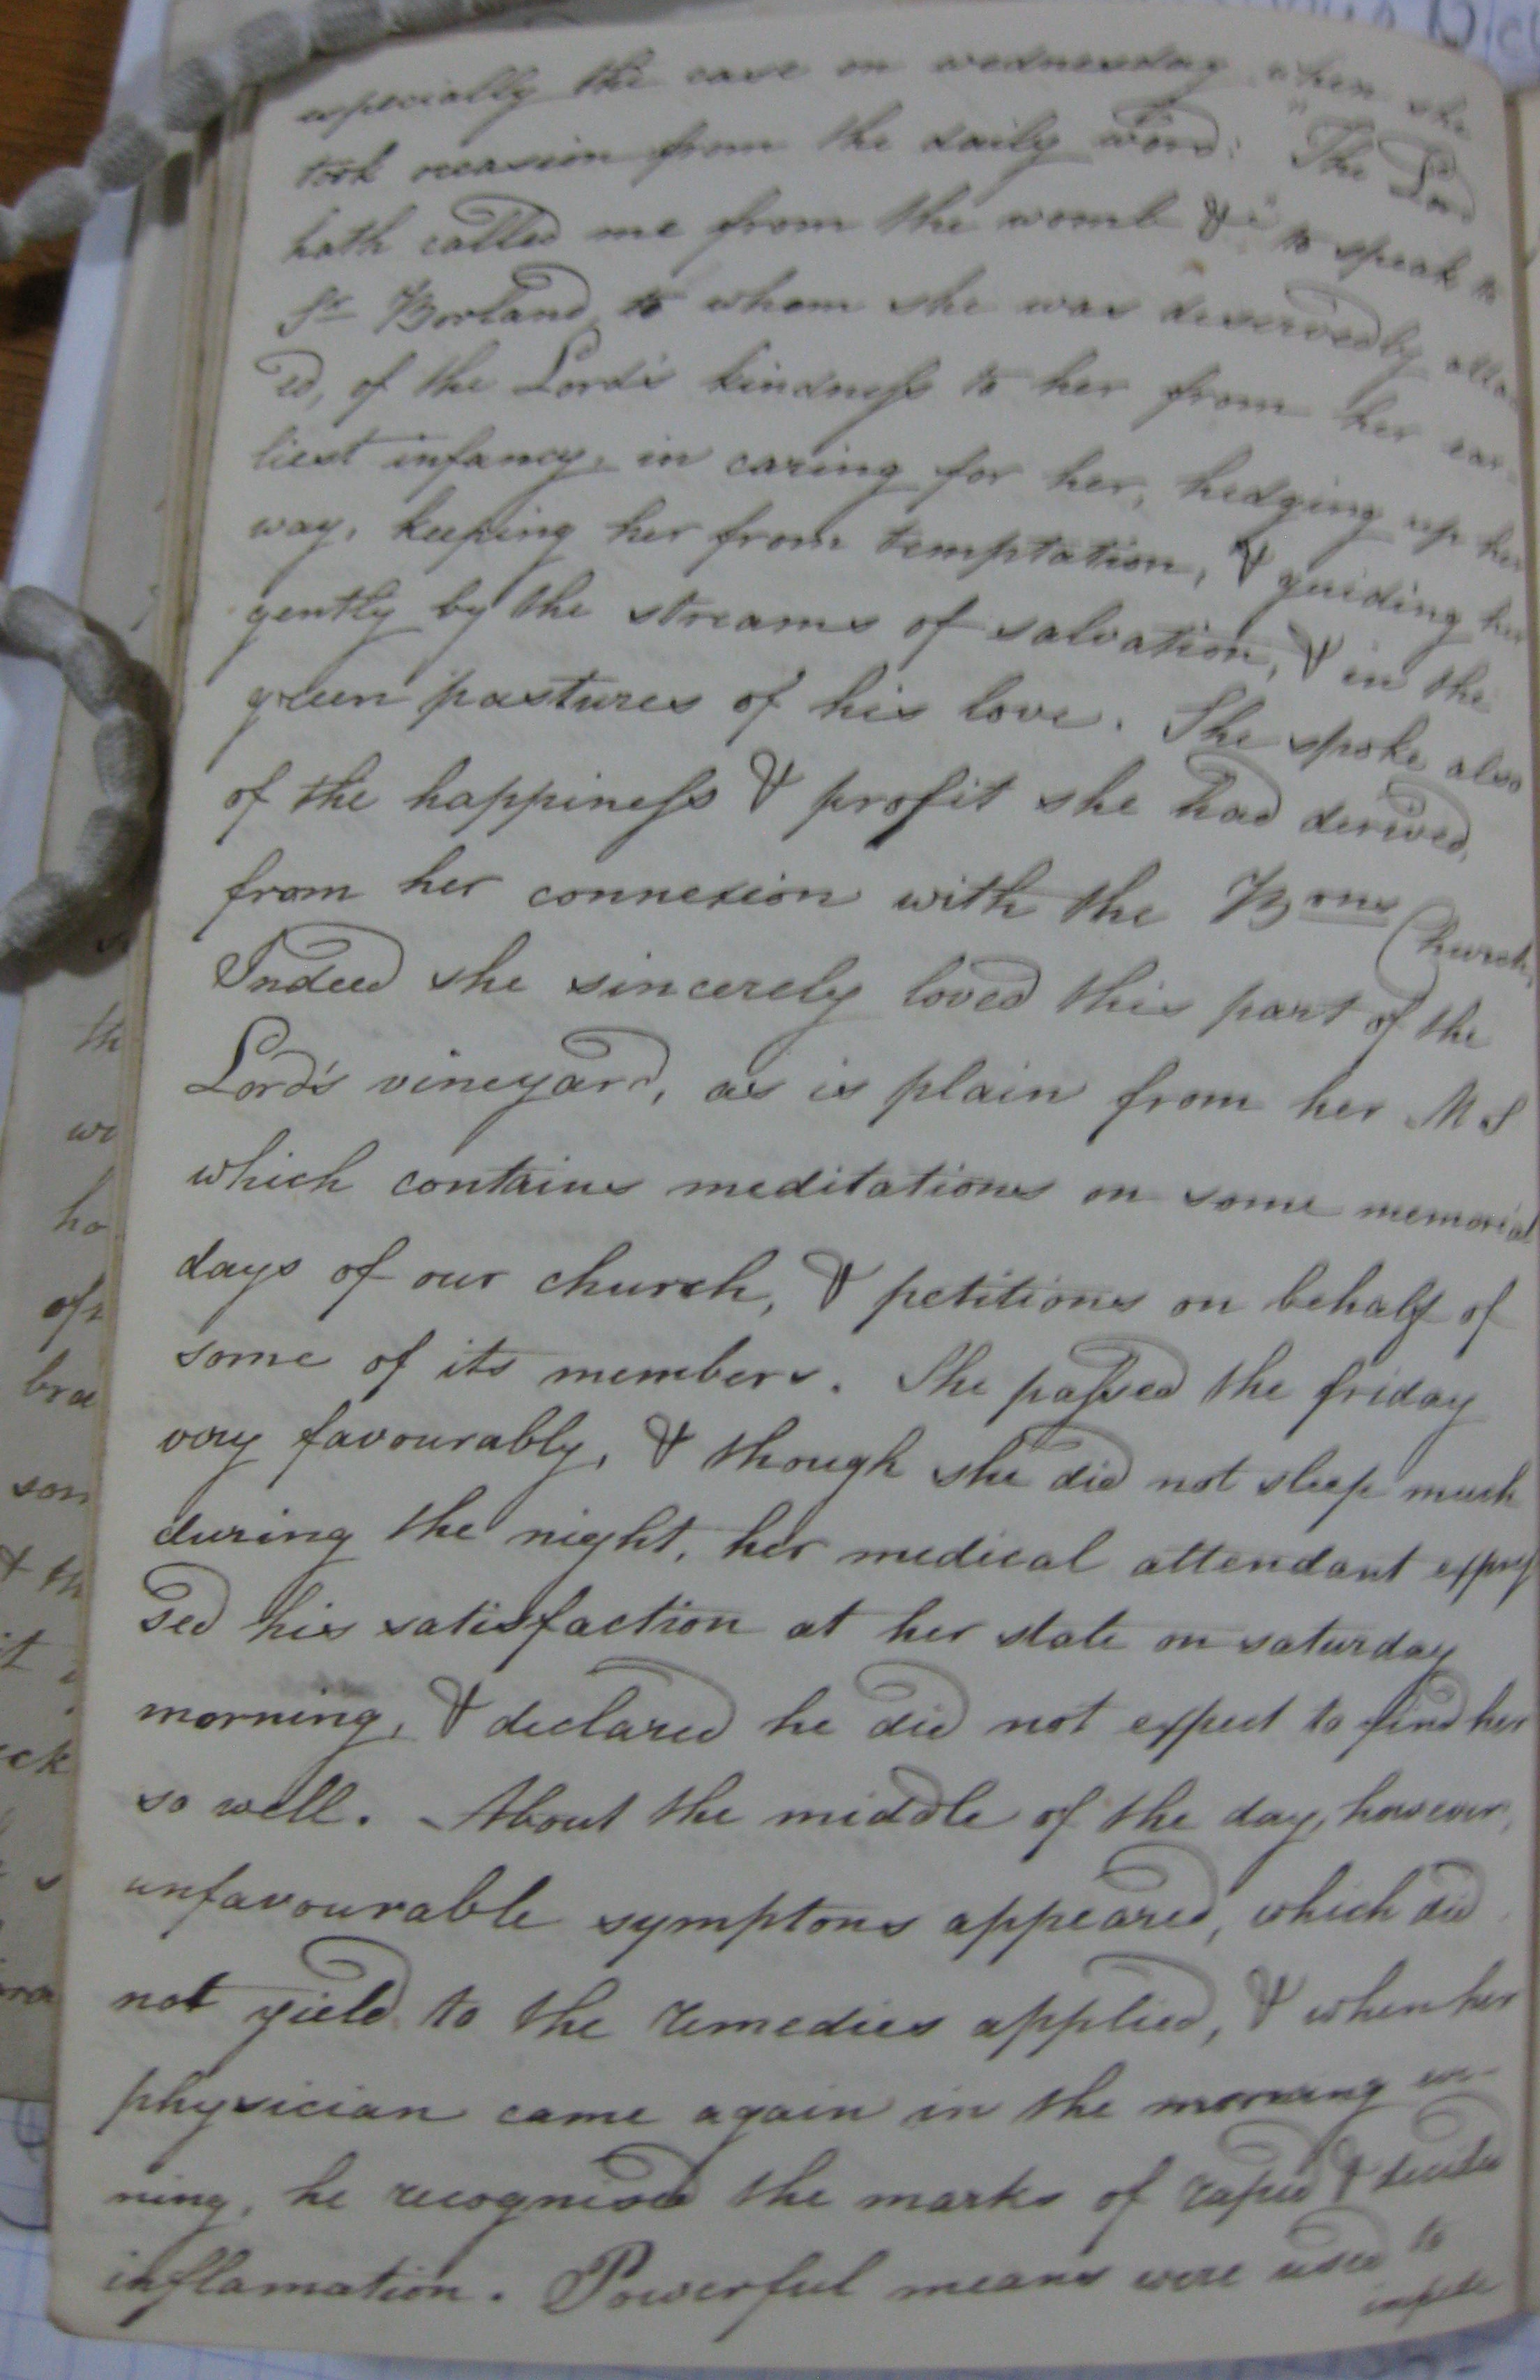 especially the case on wednesday when she
took occasion from the daily word: "The Lord
hath called me from the womb &c" to speak to
Sr Borland, to whom she was deservedly atta
ed, of the Lord's kindness to her from her ear-
liest infancy, in caring for her, hedging up her
way, keeping her from temptation, & guiding her
gently by the streams of salvation, & in the
green pastures of his love. She spoke also
of the happiness & profit she had derived,
from her connexion with the Brns Church,
Indeed she sincerely loved this part of the
Lord's vineyard, as is plain from her MS
which contains meditations on some memorial
days of our church, & petitions on behalf of
some of its members. She passed the friday
very favourably, & though she did not sleep much
during the night, her medical attendant expres
sed his satisfaction at her state on saturday
morning, & declared he did not expect to find her
so well. About the middle of the day, however,
unfavourable symptons appeared, which did
not yield to the remedies applied, & when her
physician came again in the
ning, he recognised the marks of rapid & decided
inflamation. Powerful means were used to
th
wi
ho
of
bra
son
& th
it
ck